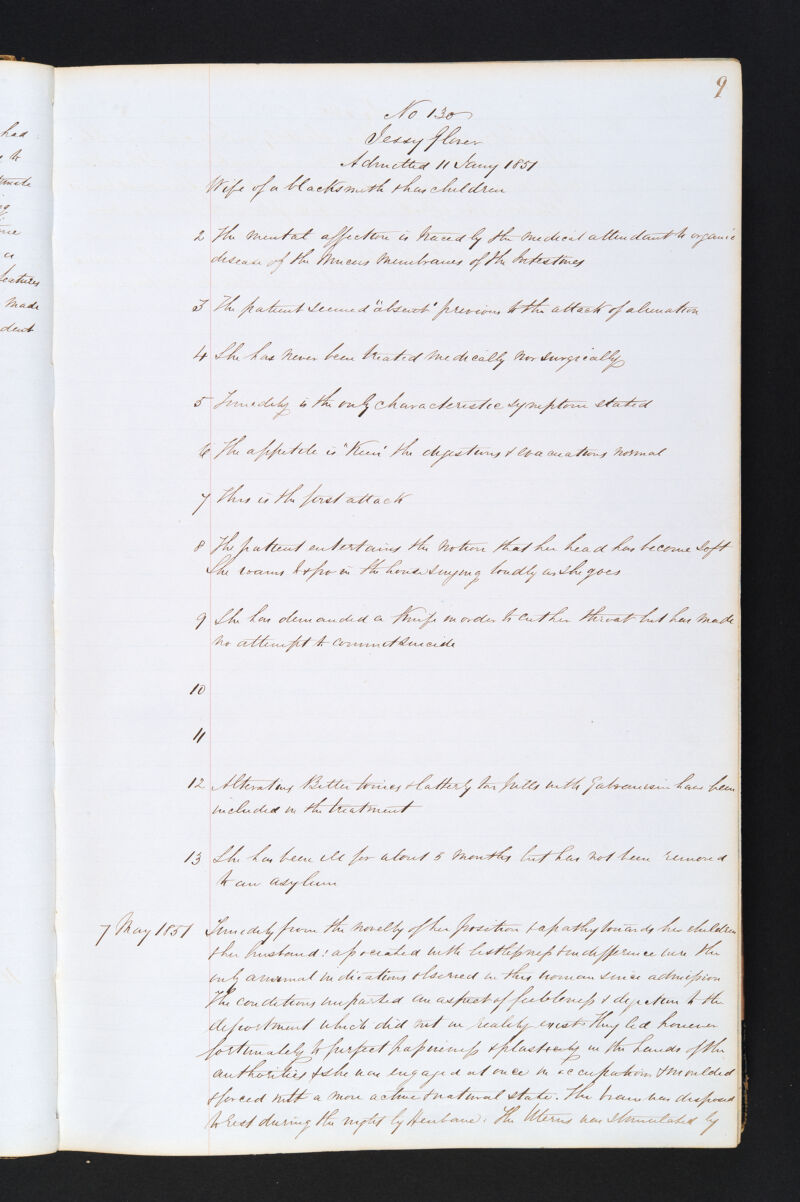 had
to
a
lectures
made
dent
9
No 130
Jessy Glover
Admitted 11 Jany 1851
Wife of a blacksmith & has children
2 The mental affection is traced by the medical attendant to organic
disease of the Mucus Membranes of the Intestines
3 The patient seemed "absent" previous to the attack of alienation
4 She has never been treated medically nor surgically
5 Timidity is the only characteristic symptom stated
6 The appetite is "Keen" the digestions & evacuations normal
7 This is the first attack
8 The patient entertains the notion that her head has become soft
She roams to & fro in the house singing loudly as she goes
9 She has demanded a Knife in order to cut her throat but has made
no attempt to commit suicide
10
11
12 Alteratives Bitter tonics & latterly Tar pills with Galvanism have been
included in the treatment
13 She has been ill for about 5 months but has not been removed
to an asylum
7 May 1851 Timidity from the novelty of her position & apathy towards her children
& her husband: associated with listlessness & indifference were the
only abnormal indications observed in this woman since admission
The conditions imparted an aspect of feebleness & dejection to the
deportment which did not in reality exist. They led however
fortunately to perfect passiveness & plasticity in the hands of the
authorities & she was engaged at once in occupation & moulded
& forced into a more active & natural state. The brain was disposed
to rest during the night by Henbane. The Uterus was stimulated by